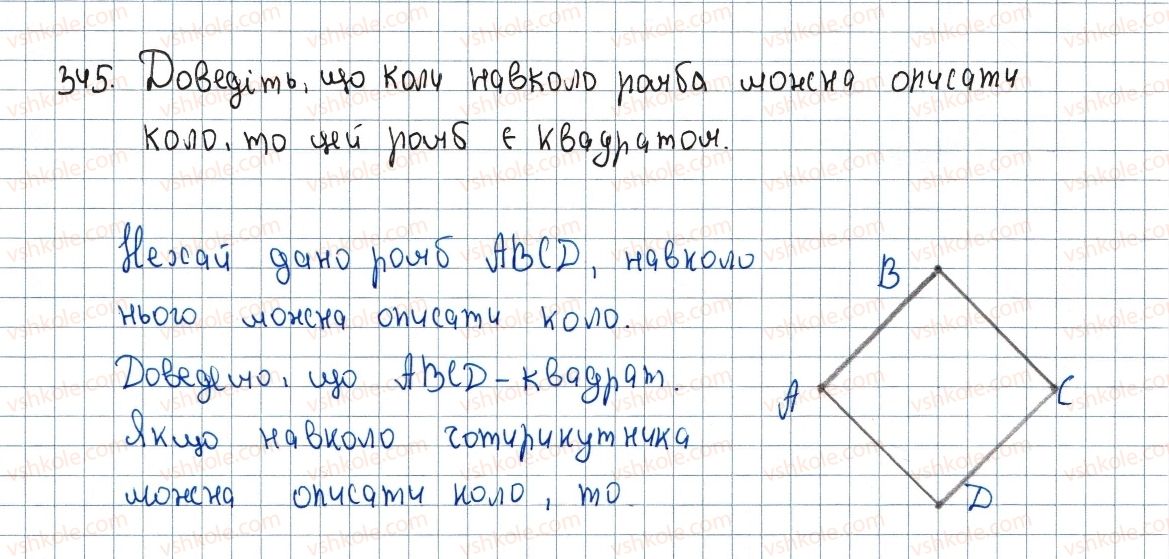 345. Доведіть, що коли навколо ромба можна описати
коло, то цей ромб є квадратом.
Нехай дано ромб ABCD, навколо
нього можна описати коло.
Доведемо, що ABCD - квадрат.
Якщо навколо чотирикутника
можна описати коло, то
B
A
C
D
vshkole.com